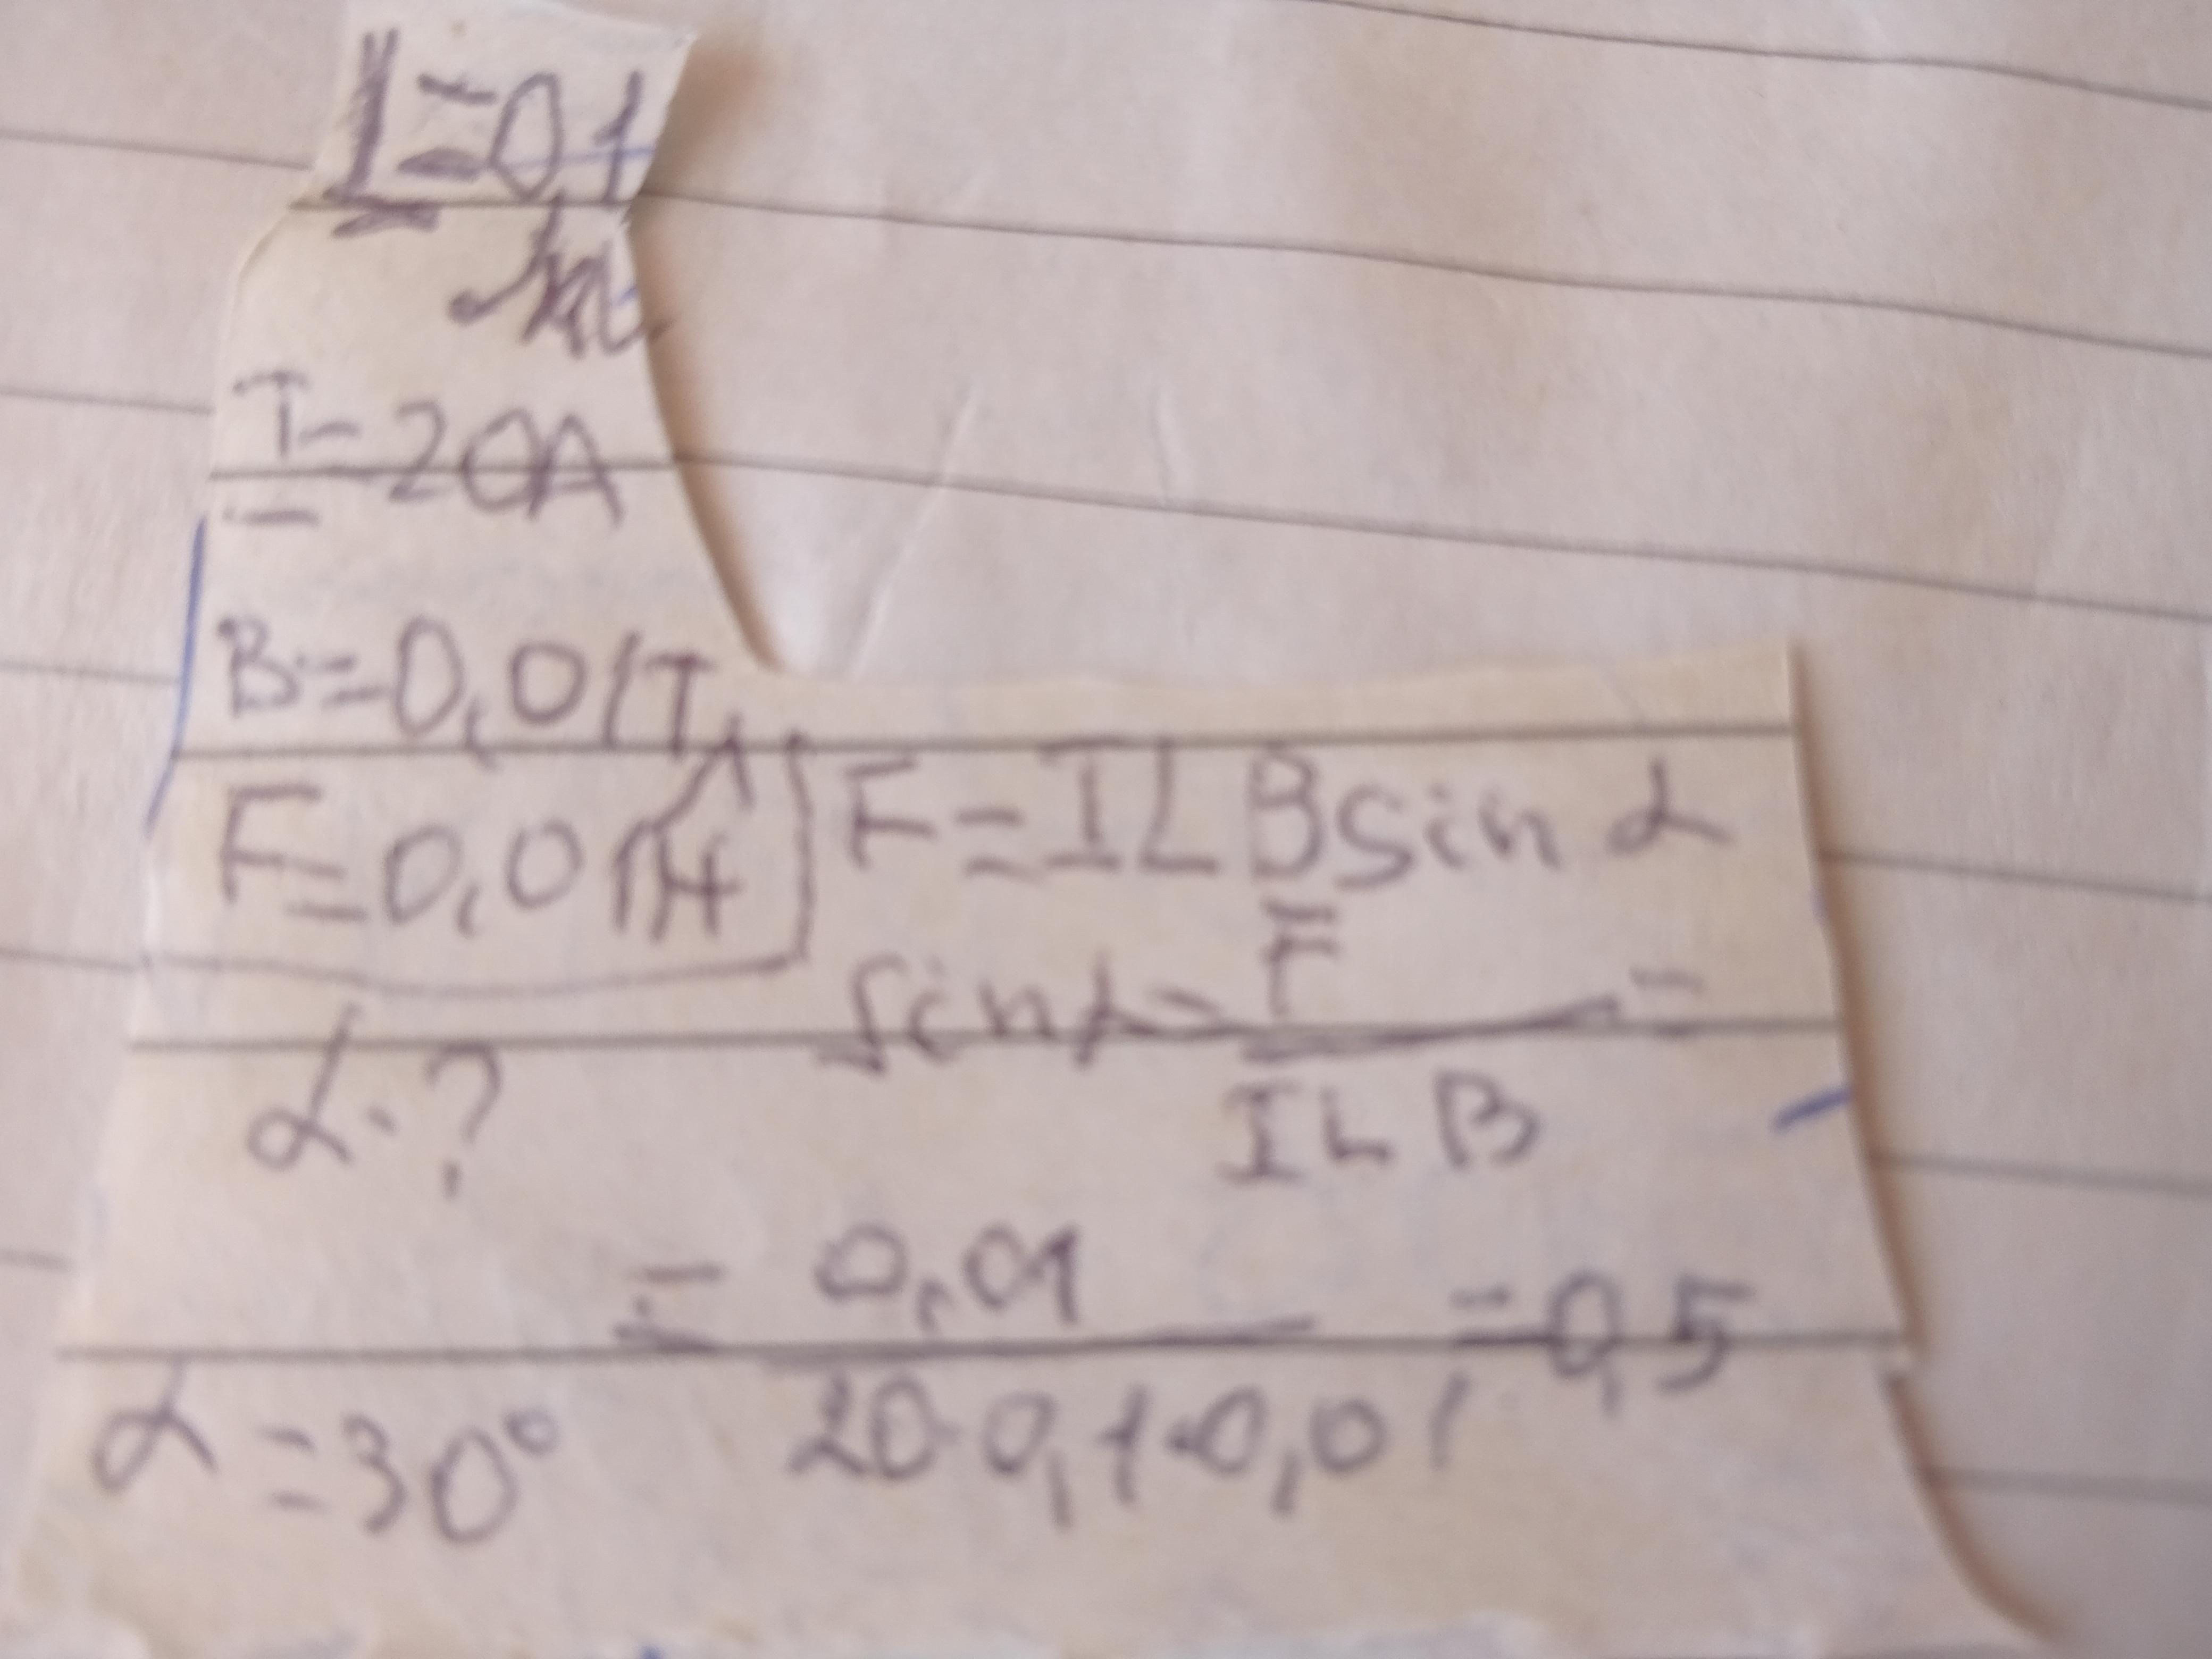 L=0,1
м
I=20A
B=0,01Тл
F=0,01H
F=ILBsin α
α-?
sinα=F/ILB=
=0,01/20·0,1·0,01=0,5
α=30°